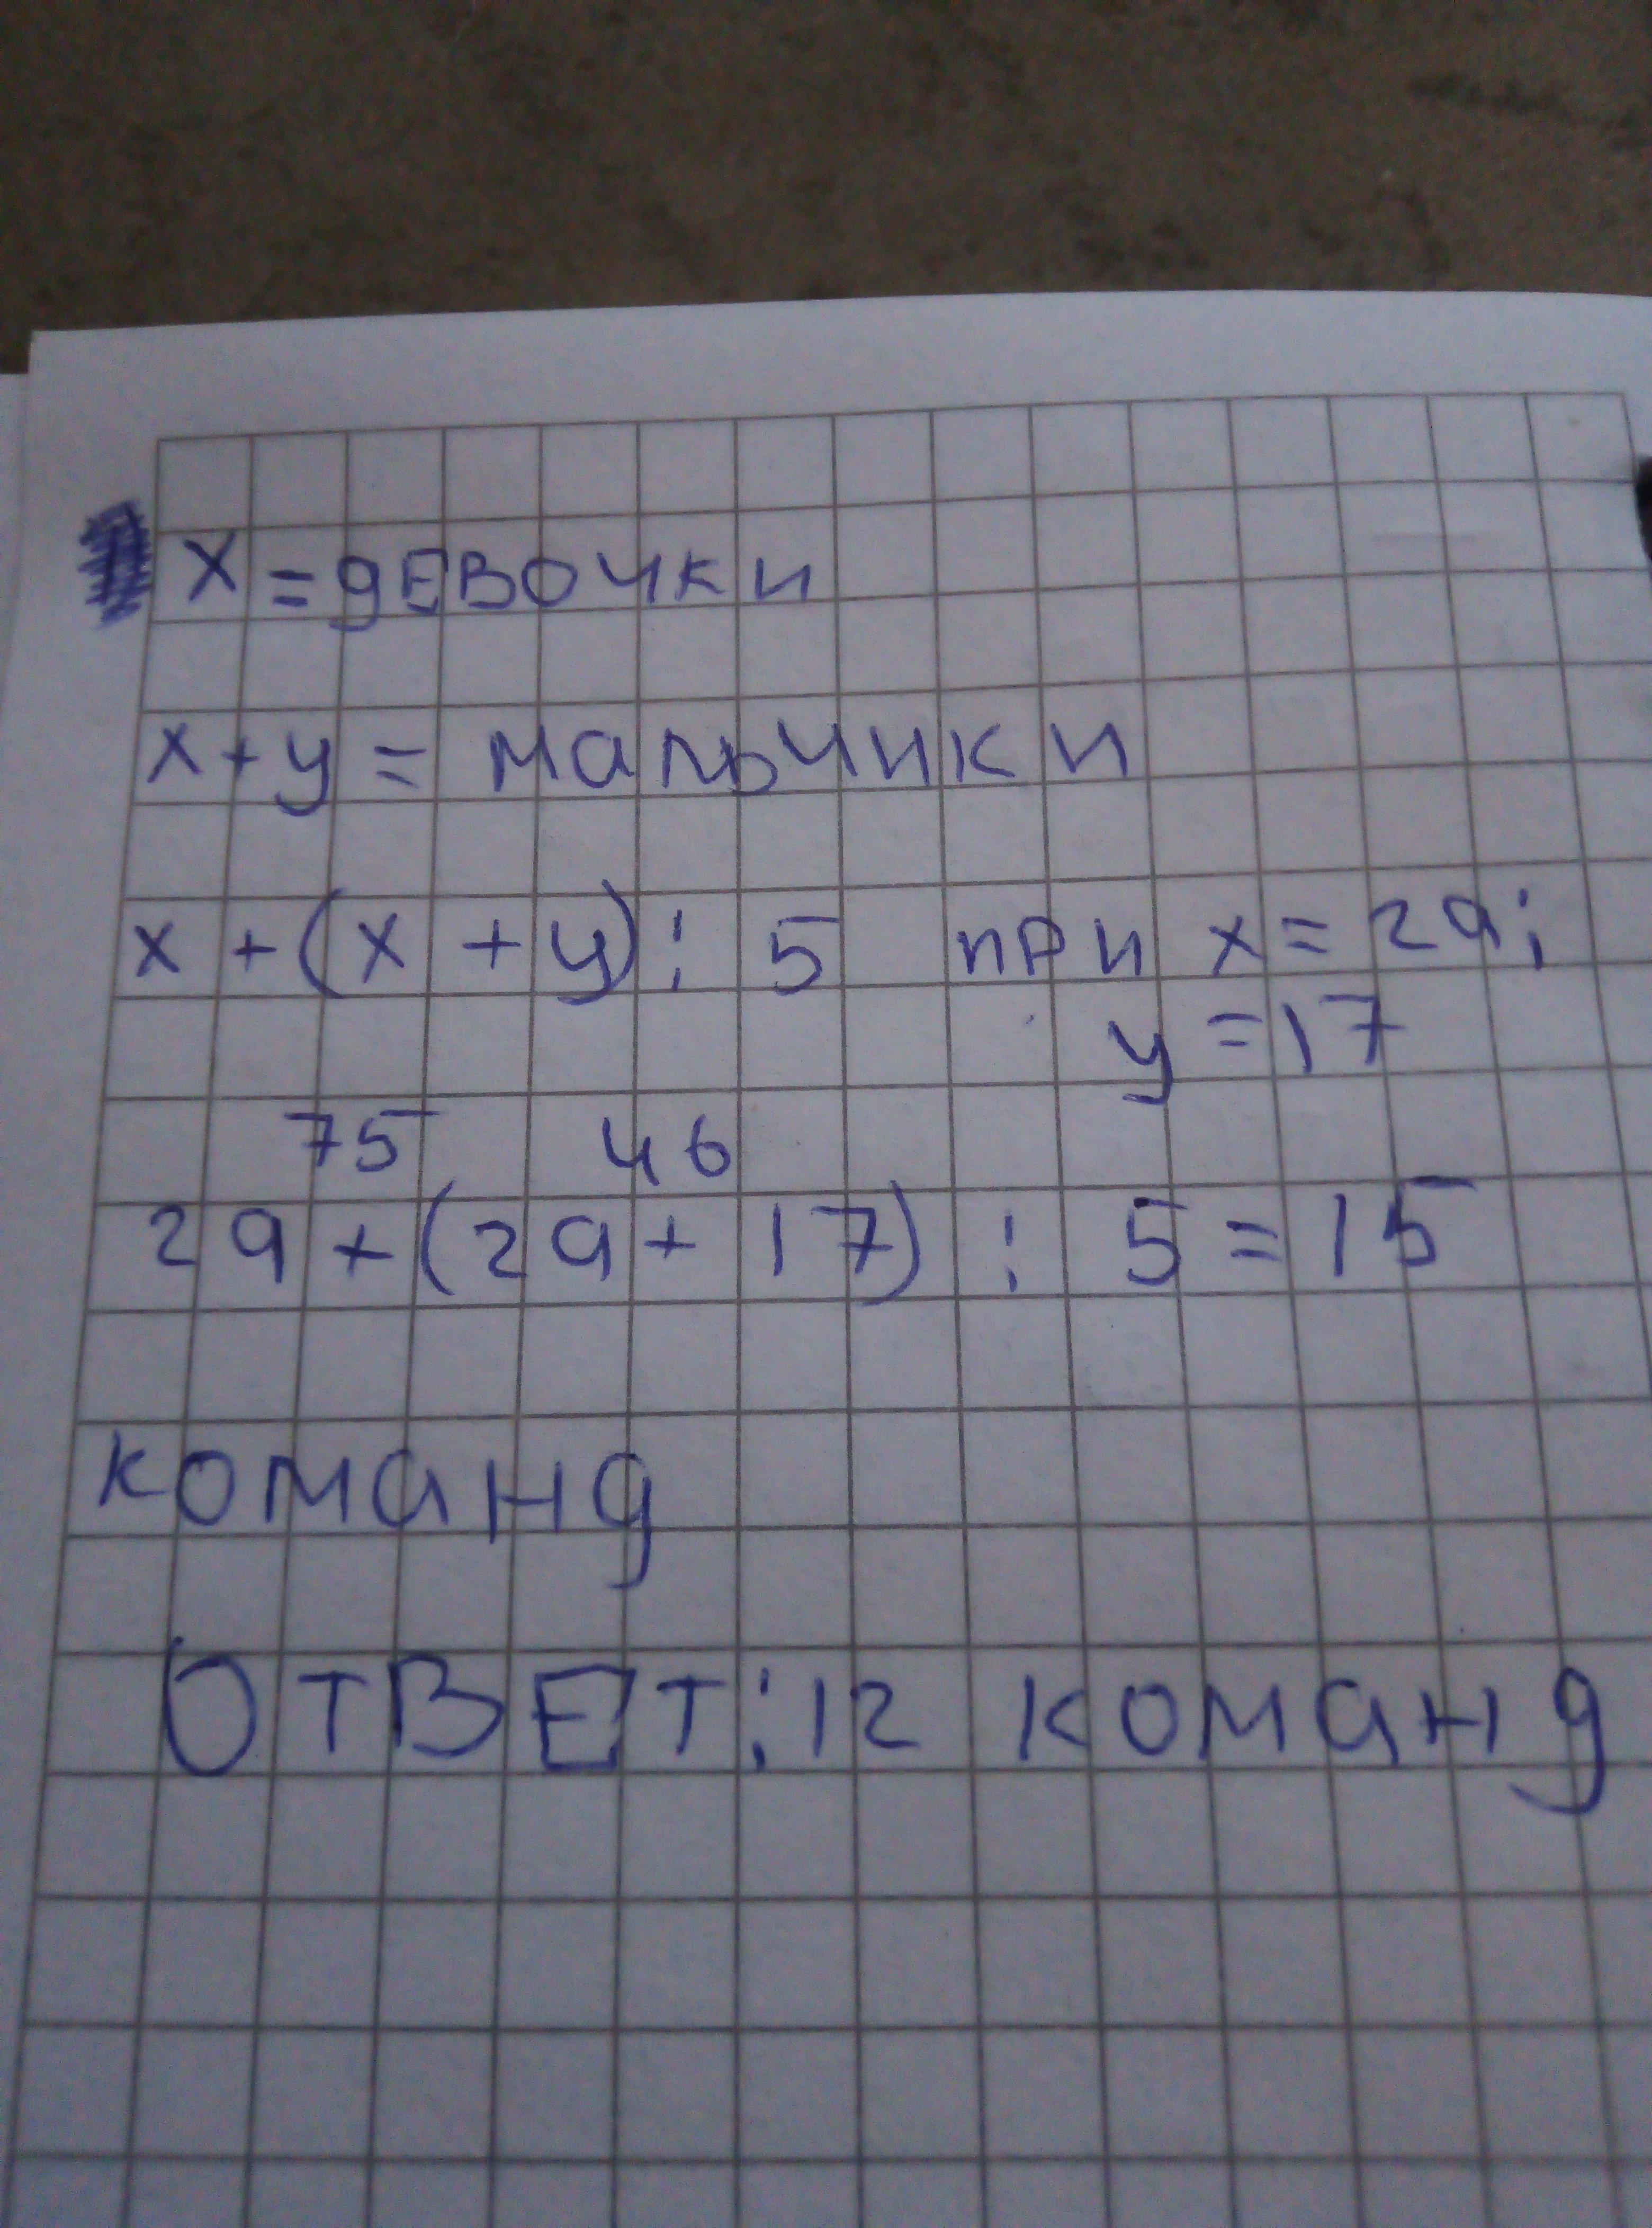 x = девочки
x + y = мальчики
x + (x + y) : 5 при x = 29;
y = 17
75 46
29 + (29 + 17) : 5 = 15
команд
Ответ: 12 команд